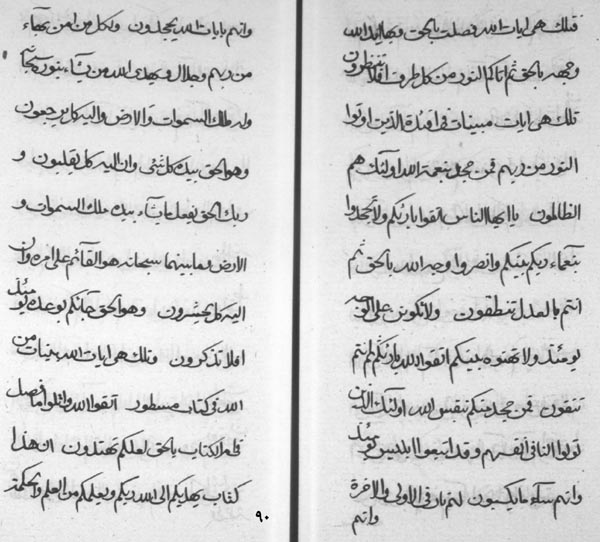 فتلك هى ايات الله فصلت بالحق وبها ايد الله
وجهه بالحق ثم اتاكم النور من كل طرف افلا تنظرون
تلك هى ايات مبينات فى افئدة الذين اوتوا
النور من ربهم فمن جحد بنعمة الله اولئك هم
الظالمون يا ايها الناس اتقوا بارئكم ولا تجحدوا
بنعماء ربكم بينكم وانصروا وجه الله بالحق ثم
انتم بالعدل تنطقون ولا تكونن على
يومئذ ولا بينكم اتقوا الله بارئكم لعلكم انتم
تتقون فمن جحد منكم بنفس الله اولئك الذين
تولوا النار فى انفسهم وقد اتبعوا ابليس يومئذ
ولهم ساء ما يكسبون لهم نار فى الاولى والاخرة
وانهم
وانهم بايات الله يجحدون ولكل من امن بهاء
من ربهم وجلال ويهدى الله من يشاء بنوره سبحانه
وله ملك السموات والارض واليه كل يرجعون
وهو الحق بيده كل شئ وان اليه كل يقلبون و
ربك الحق يفعل ما يشاء بيده ملك السموات و
الارض وما بينهما سبحانه هو القائم على امره وان
اليه كل يحشرون وهو الحق جائكم بوعده يومئذ
افلا تذكرون وتلك هى ايات الله بينات من
الله فى كتاب مسطور اتقوا الله واتلوا ما فصل
فى الكتاب بالحق لعلكم تهتدون ان هذا
كتاب يهديكم الى الله ربكم ويعلمكم من العلم والحكمة
٩٠